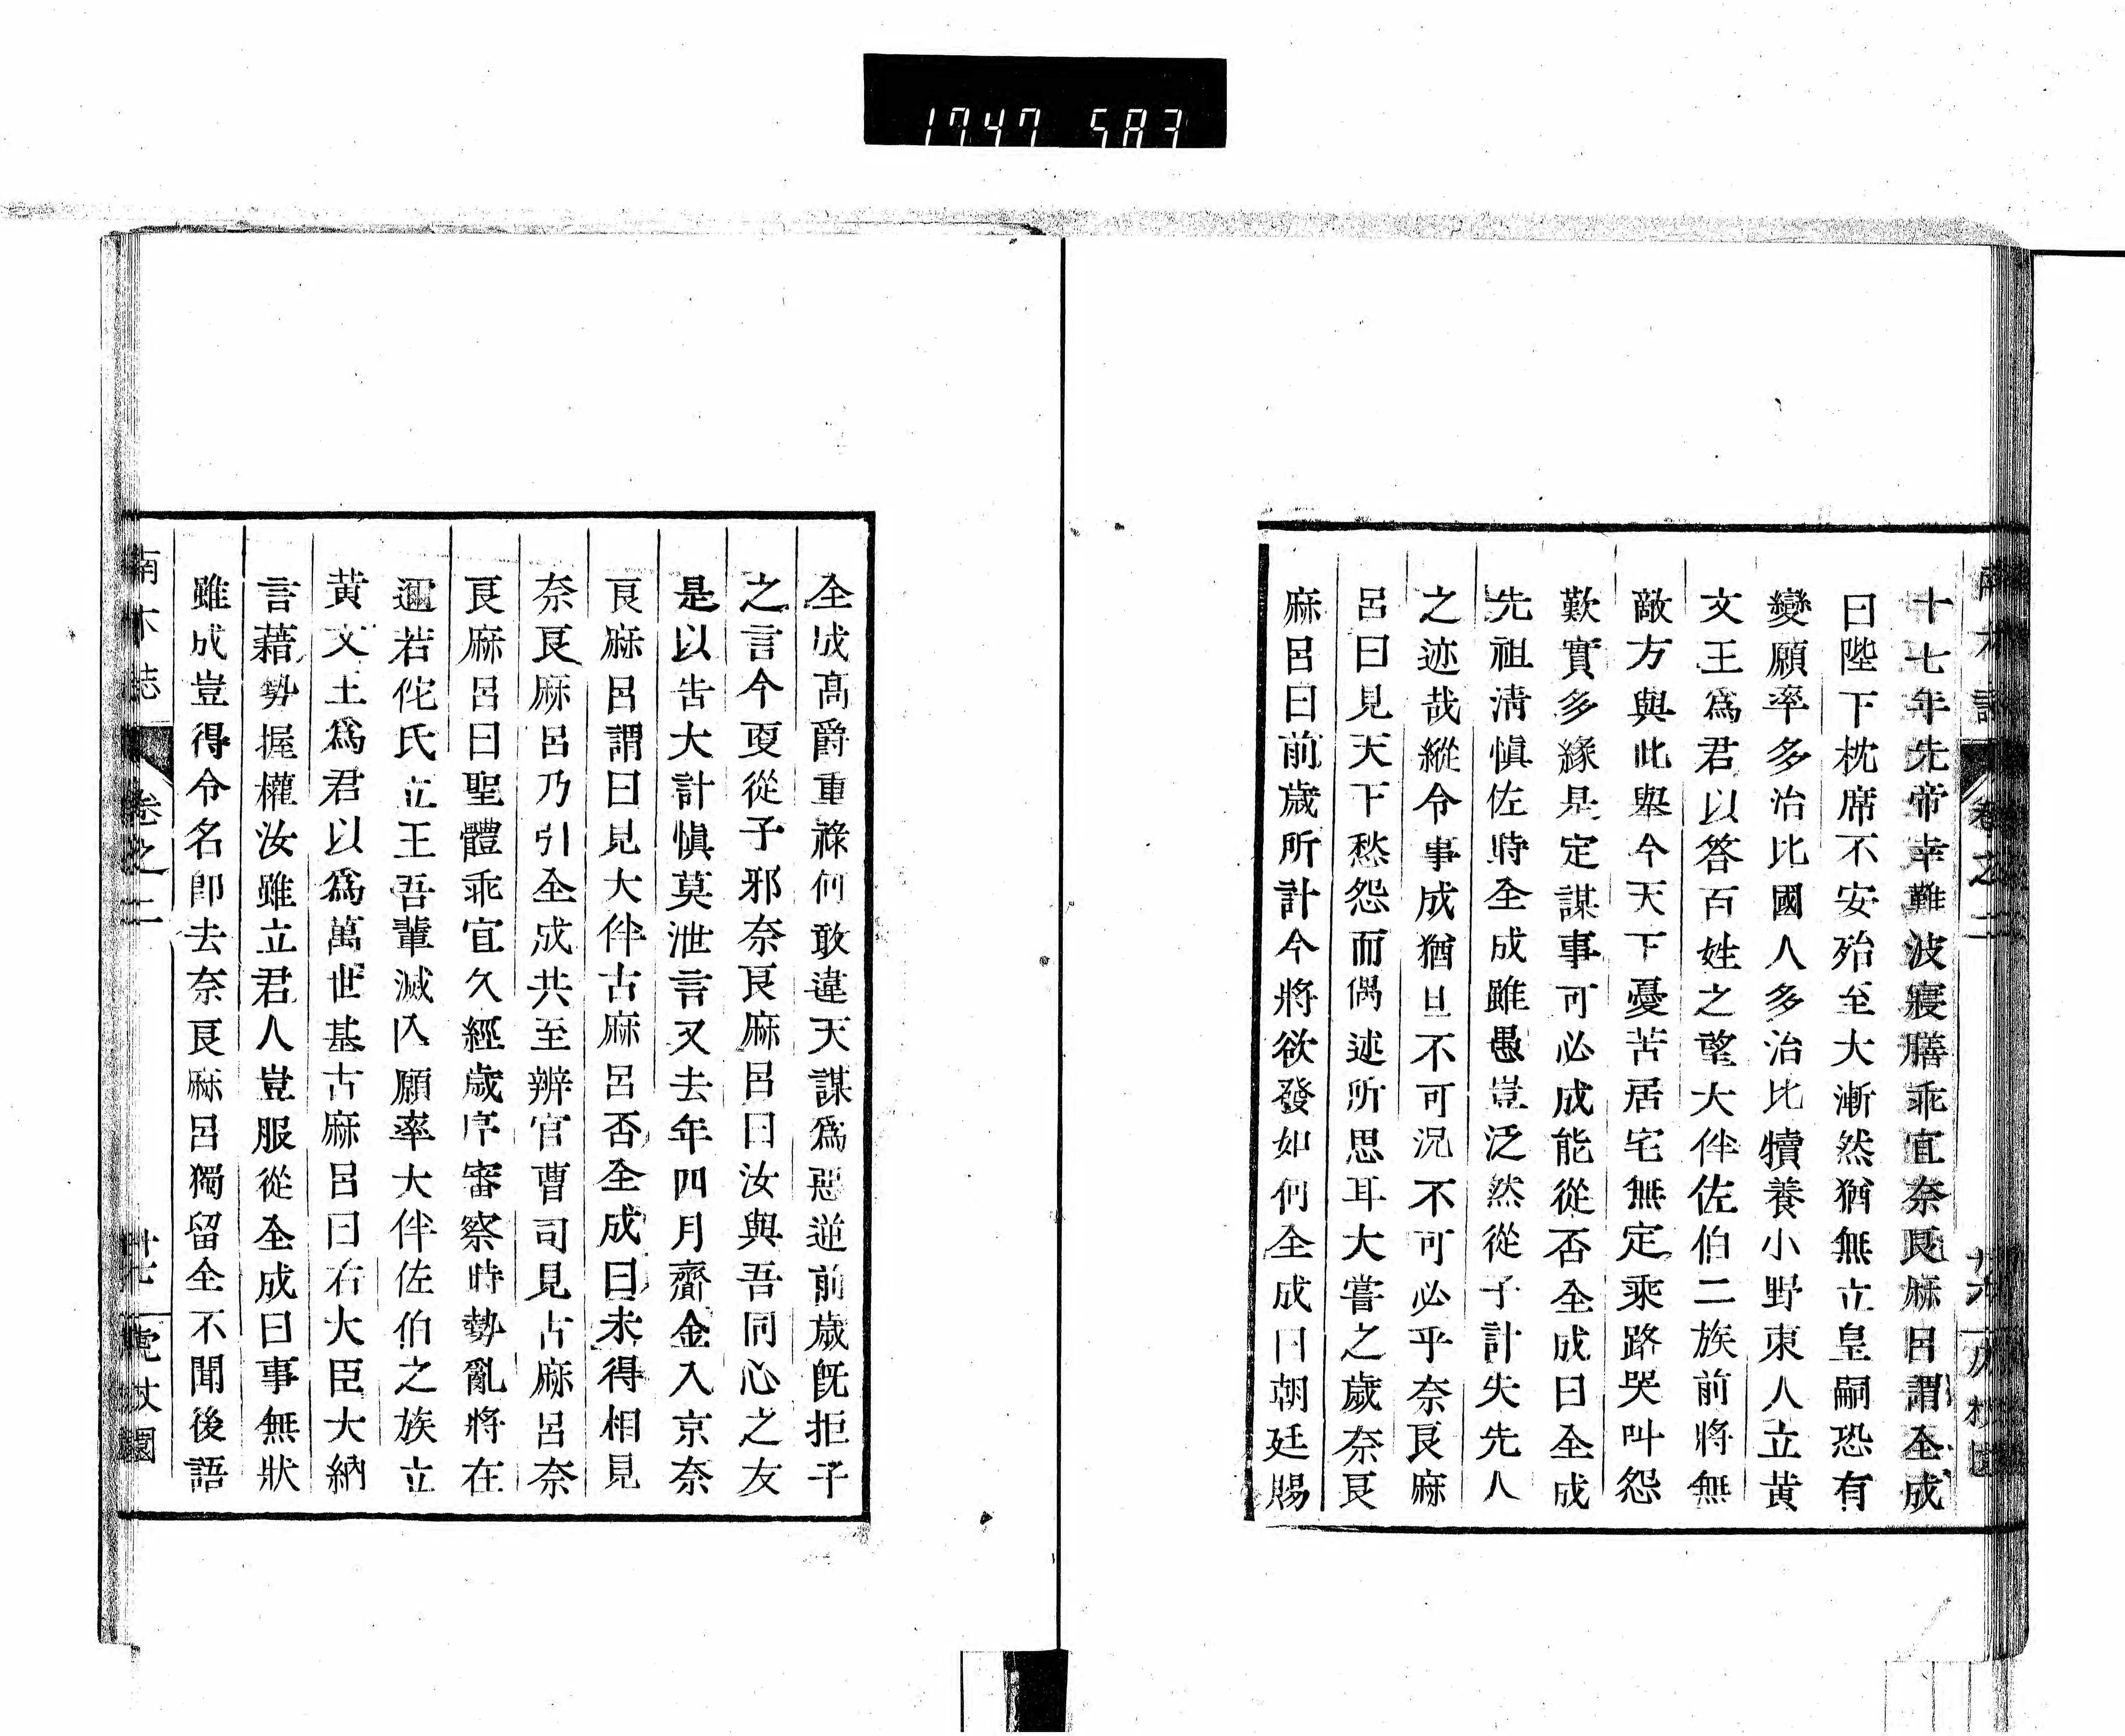 1747 583
十七年先帝幸難波寢膳乖宜奈良麻呂謂全成
曰陛下枕席不安殆至大漸然猶無立皇嗣恐有
變願率多治比國人多治比犢養小野東人立黃
文王爲君以答百姓之望大伴佐伯二族前將無
敵方與此擧今天下憂苦居宅無定乘路哭叫怨
歎實多緣是定謀事可必成能從否全成曰全成
先祖淸愼佐時全成雖愚豈泛然從子計失先人
之迹哉縱令事成猶且不可況不可必乎奈良麻
呂曰見天下愁怨而偶述所思耳大嘗之歲奈良
麻呂曰前歲所計今將欲發如何全成曰朝廷賜
全成高爵重祿何敢違天謀爲惡逆前歲旣拒子
之言今更從子邪奈良麻呂曰汝與吾同心之友
是以告大計愼莫泄言又去年四月齎金入京奈
良麻呂謂曰見大伴古麻呂否全成曰未得相見
奈良麻呂乃引全成共至辨官曹司見古麻呂奈
良麻呂曰聖體乖宜久經歲序審察時勢亂將在
邇若佗氏立王吾輩滅亾願率大伴佐伯之族立
黃文王爲君以爲萬世基古麻呂曰右大臣大納
言藉勢握權汝雖立君人豈服從全成曰事無狀
雖成豈得令名卽去奈良麻呂獨留全不聞後語
卷之二